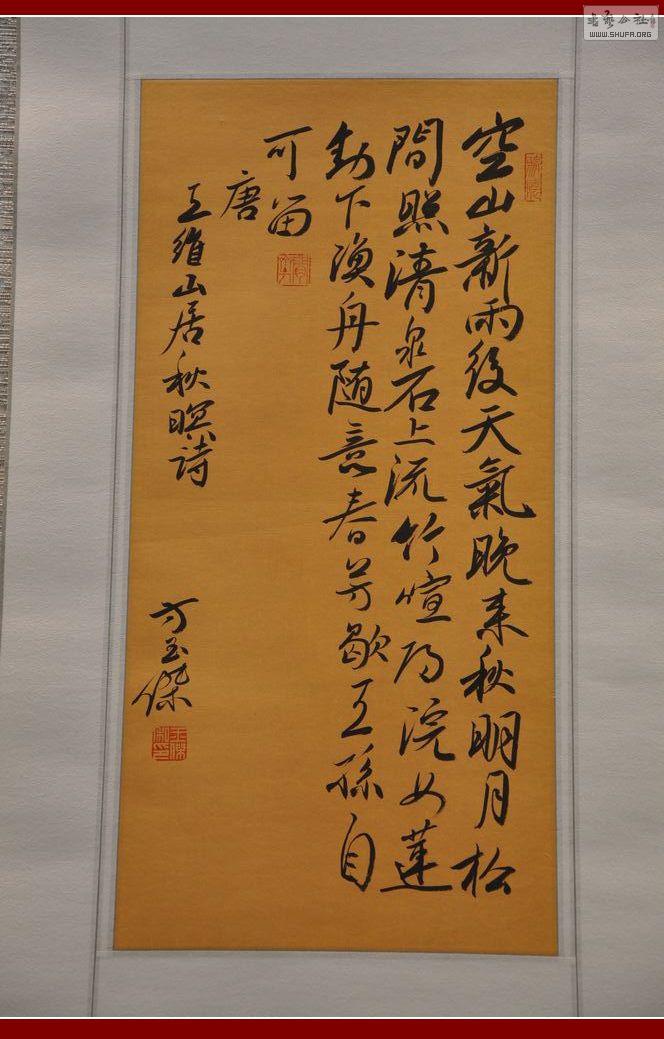 空山新雨後天氣晚来秋明月松
間照清泉石上流竹喧歸浣女蓮
動下渔舟随意春芳歇王孫自
可留
唐
王維山居秋暝詩
方玉傑
WWW.SHUFA.ORG